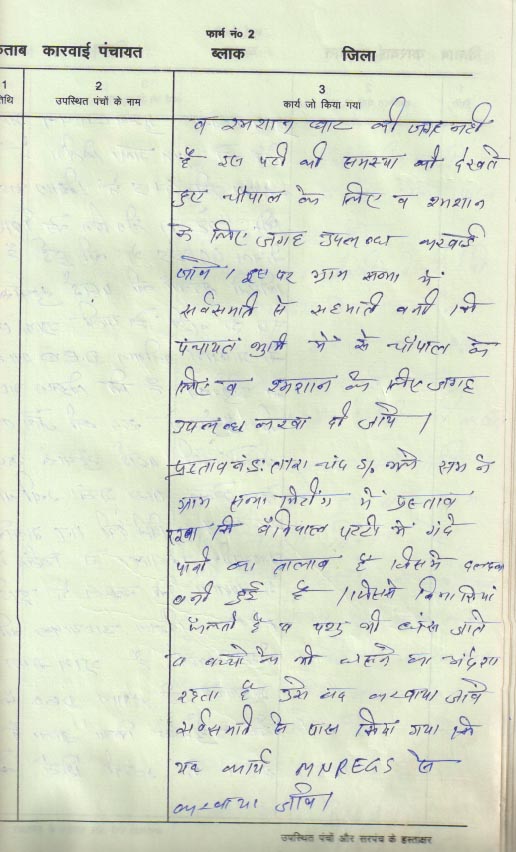 फार्म नं० 2
ताब कारवाई पंचायत ब्लाक जिला
1 2 3
तिथि उपस्थित पंचों के नाम कार्य जो किया गया
व श्मशान घाट की जगह नही
है इस पटी की समस्या को देखते
हुए चौपाल के लिए व श्मशान
के लिए जगह उपलब्ध करवाई
जावे । इस पर ग्राम सभा में
सर्वसमति से सहमति बनी कि
पंचायत भूमि में से चौपाल के
लिए व श्मशान के लिए जगह
उपलब्ध करवा दी जावे ।
प्रस्ताव तारा चंद S/o राम ने
ग्राम सभा मिटिंग में प्रस्ताव
रखा कि पट्टी में गंदे
पानी का तालाब है जिसमे दलदल
बनी हुई है । जिससे बिमारियां
फैलती है व पशु भी धंस जाते
व बच्चो के भी धसने का अंदेशा
रहता है उसे बंद करवाया जावे
सर्वसमति से पास किया गया कि
यह कार्य MNREGS से
करवाया जावे ।
उपस्थित पंचों और सरपंच के हस्ताक्षर